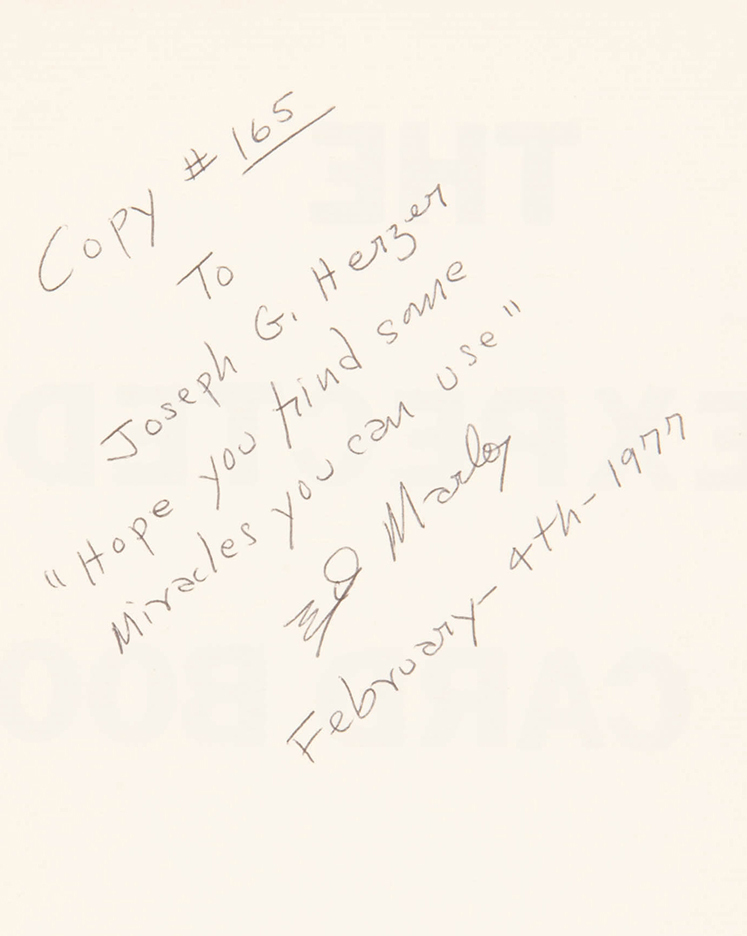 Copy # 165
To
Joseph G. Herzer
"Hope you find some
Miracles you can use"
Ed Marlo
February-4th-1977
THE
EXPECTED
CARD BOO